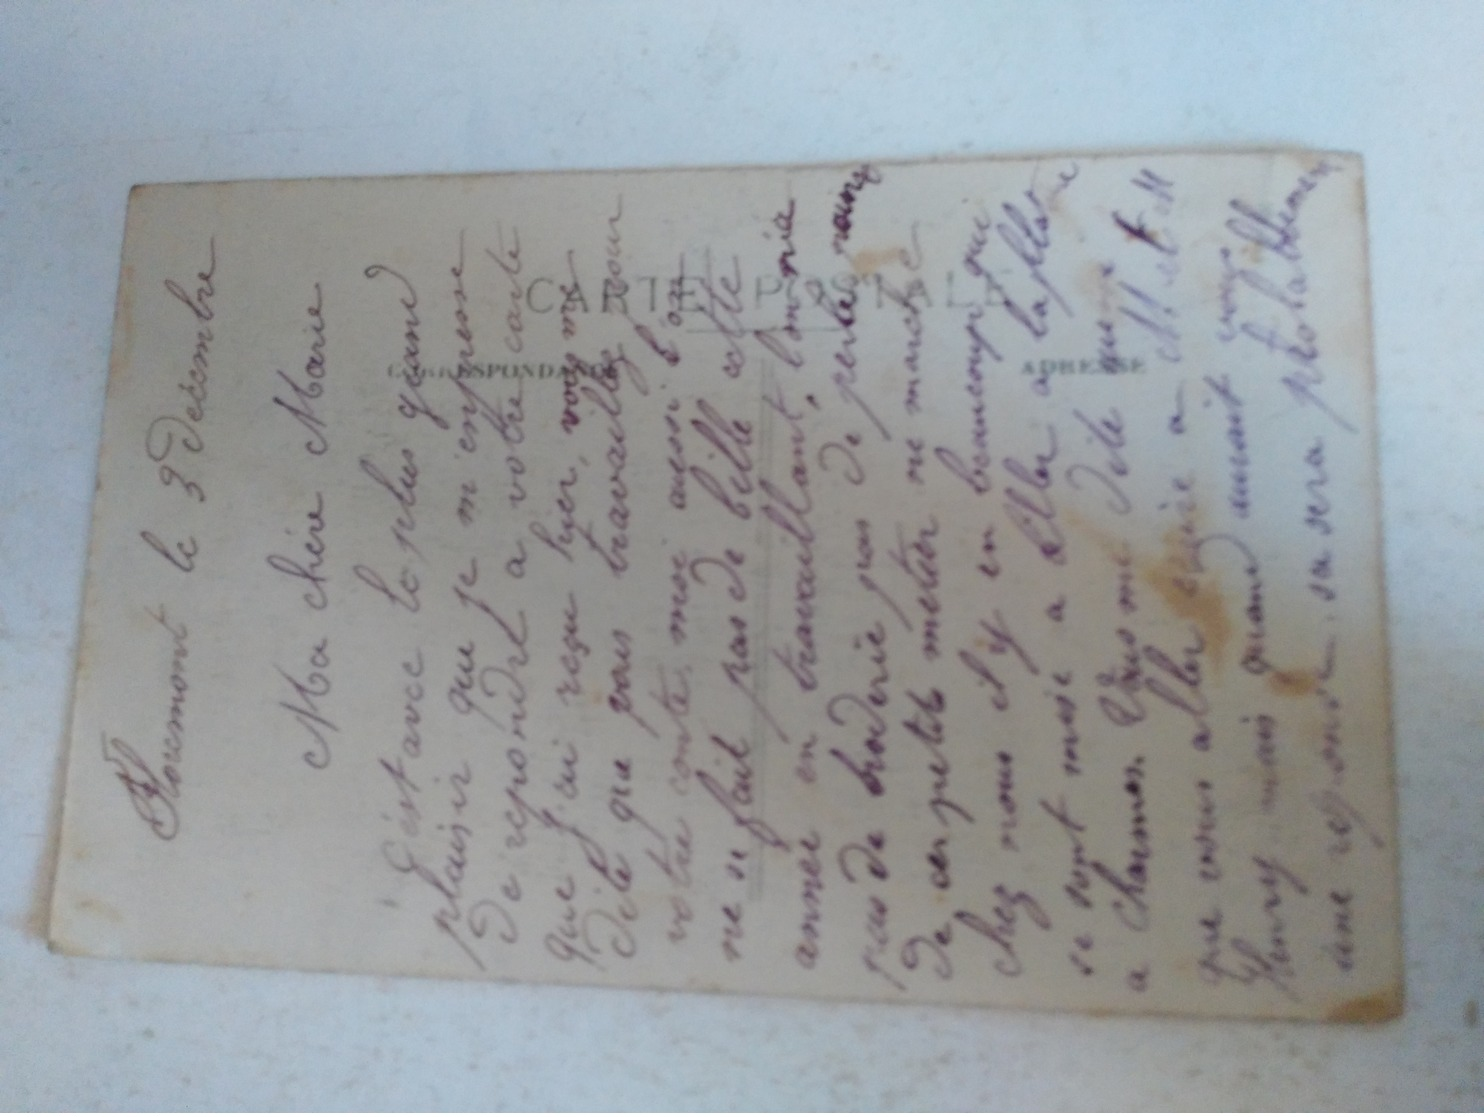 CARTE POSTALE
CORRESPONDANCE
ADRESSE
le 3 desembre
Ma chère Marie
C'est avec le plus grand
plaisir que je m'enpresse
De repondre a votre carte
que j'ai reçu hyer, vous me
dite que vous travaillez pour
votre conte, moi aussi l'on
ne se fait pas de belle cette
année en travaillant, l'on n'a
pas de broderie pas de perles
De ces petits metier ne marche
chez nous il y en beaucoup qui
se sont mise a aller a la
a Charmes. Vous me dite que
que vous aller ecrire a M et M
Henry mais quand aurait vous
une reponse. sa sera probablement